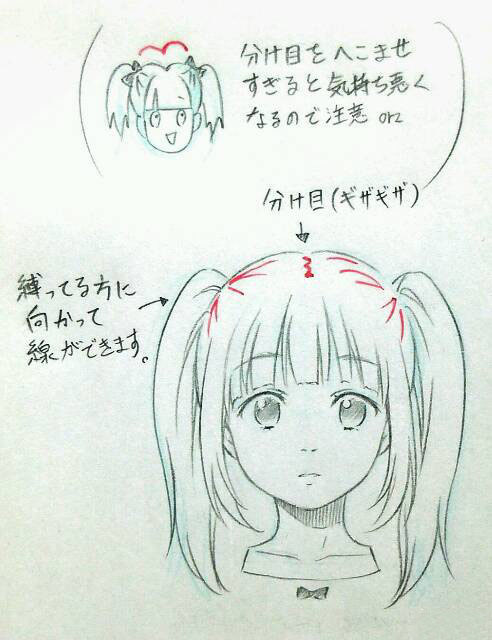 分け目をへこませ
すぎると気持ち悪く
なるので注意 orz
分け目(ギザギザ)
縛ってる方に
向かって
線ができます。